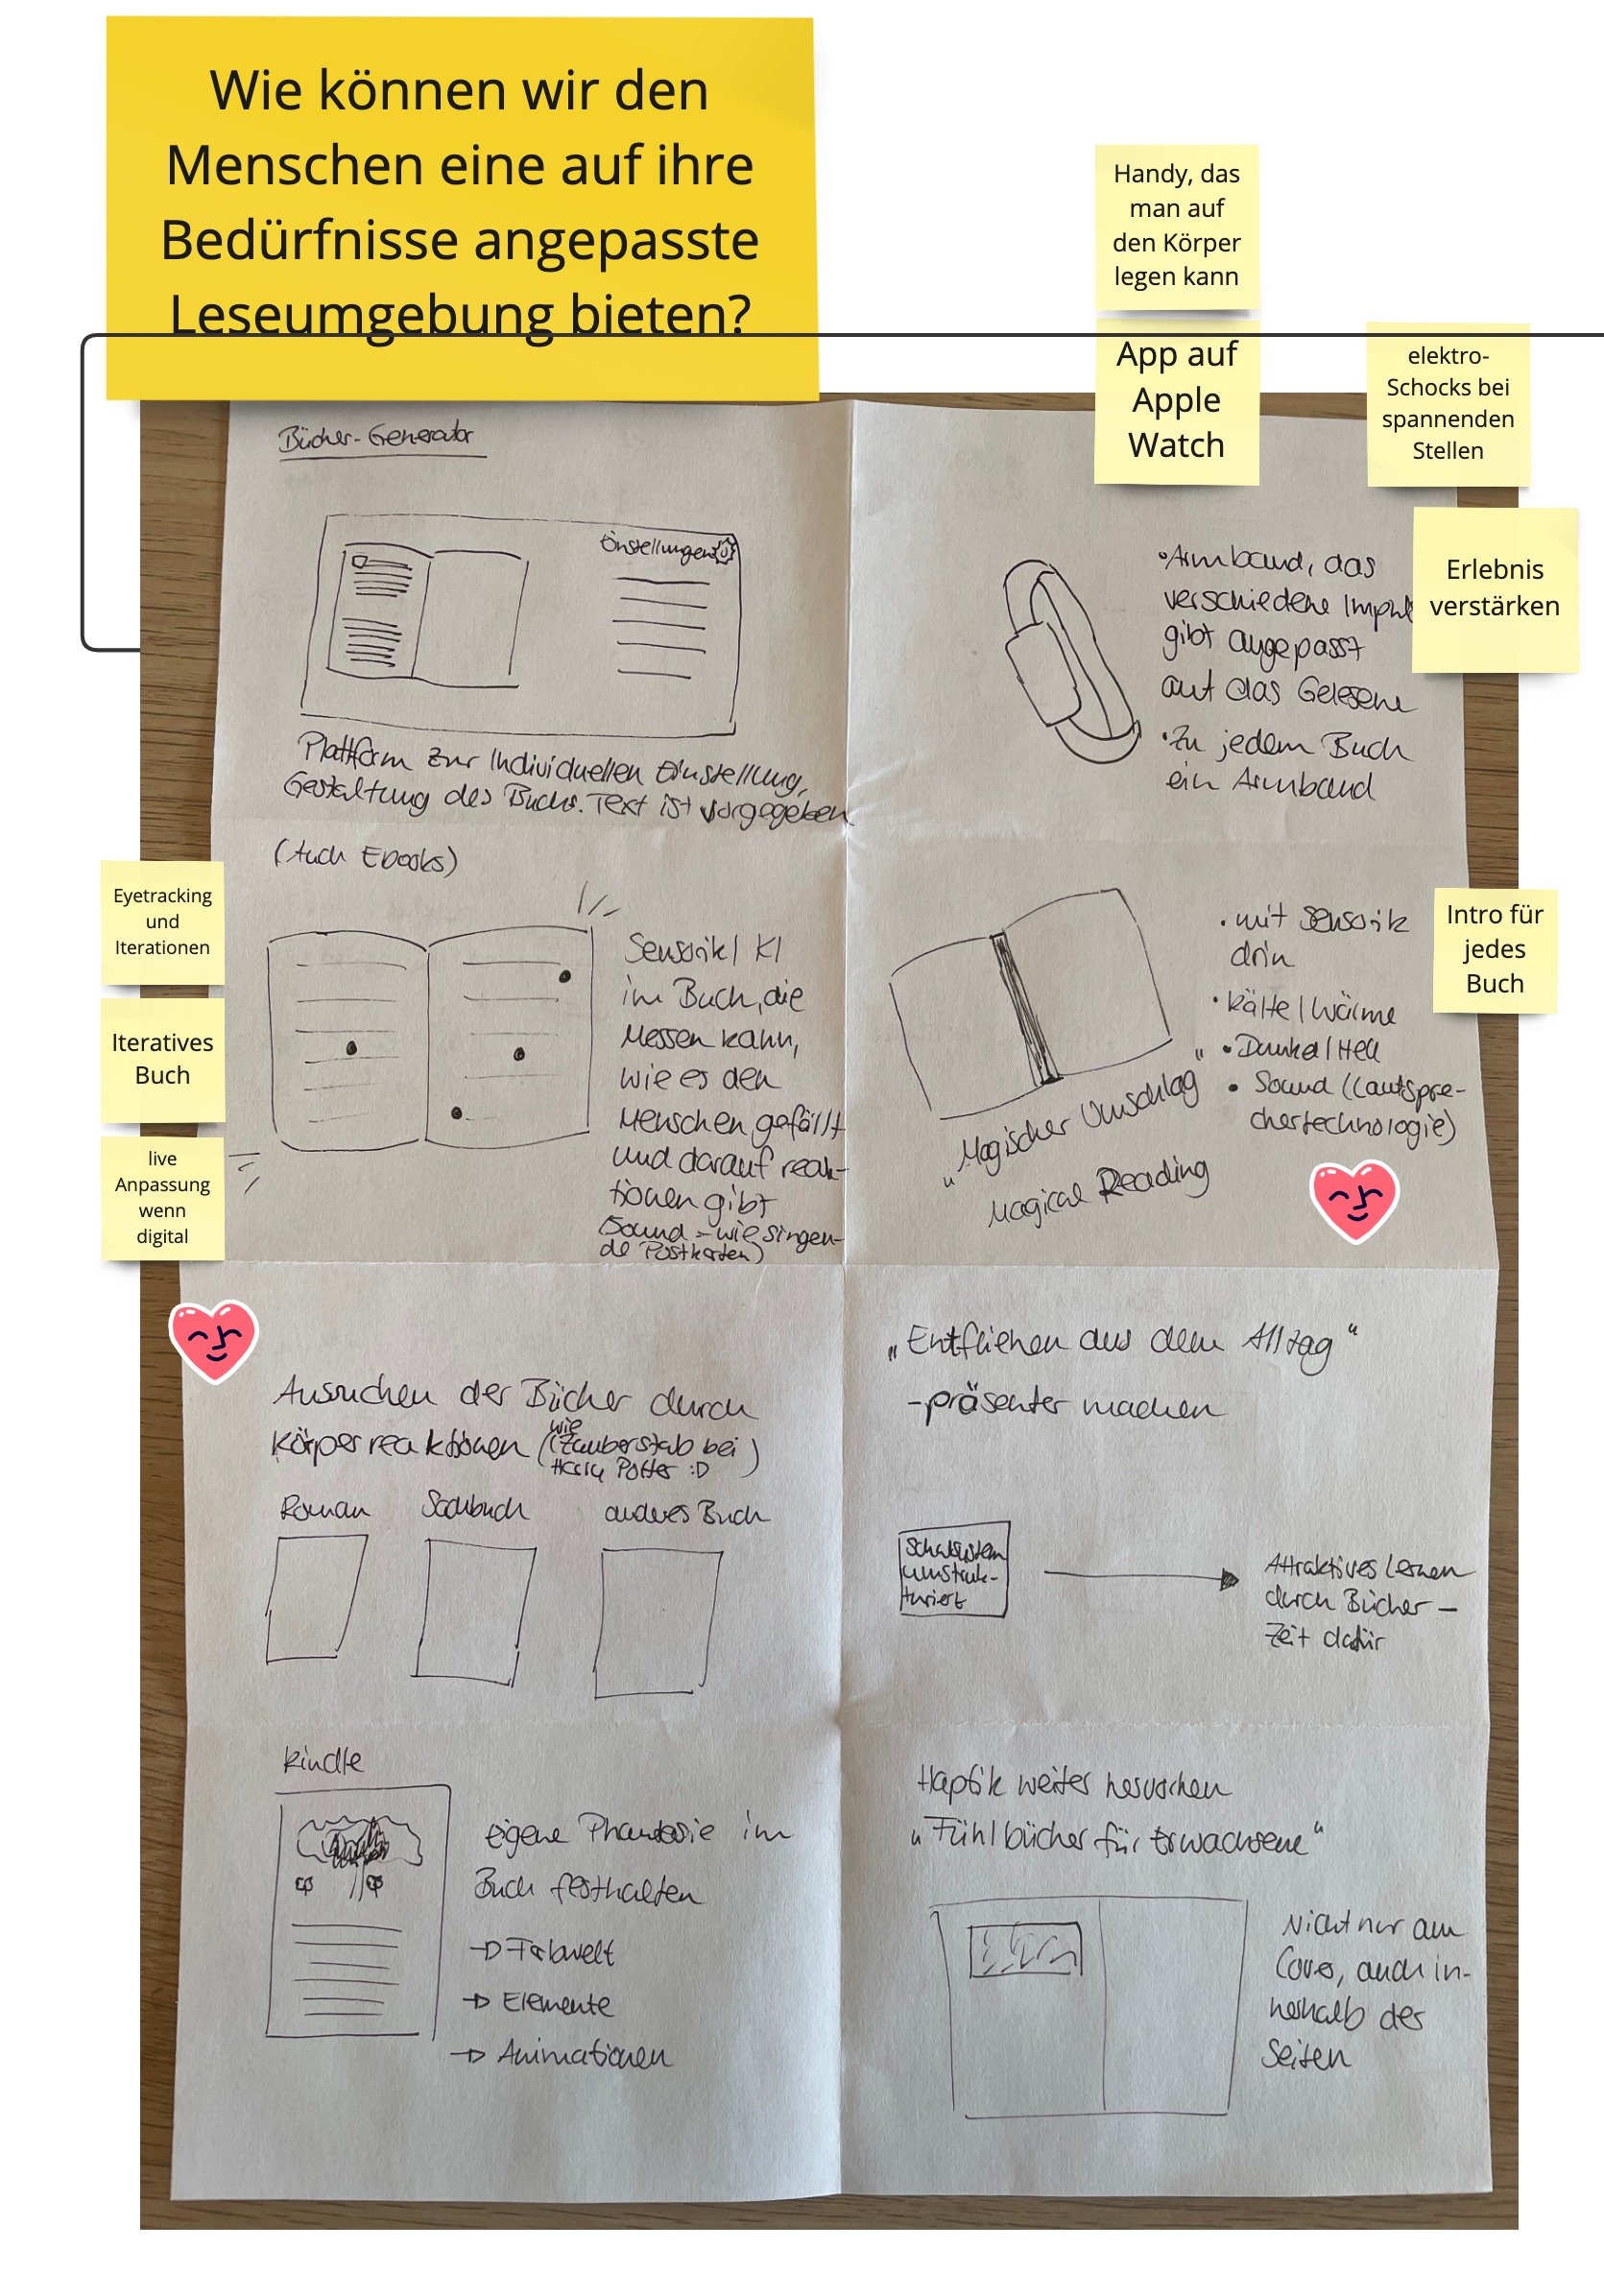 Wie können wir den
Menschen eine auf ihre
Bedürfnisse angepasste
Leseumgebung bieten?
Handy, das
man auf
den Körper
legen kann
App auf
Apple
Watch
elektro-
Schocks bei
spannenden
Stellen
Erlebnis
verstärken
Bücher-Generator
Einstellungen
Plattform zur Individuellen Einstellung,
Gestaltung des Buchs. Text ist vorgegeben
(Auch Ebooks)
• Armband, das
verschiedene Impuls
gibt angepasst
auf das Gelesene
• Zu jedem Buch
ein Armband
Eyetracking
und
Iterationen
Iteratives
Buch
live
Anpassung
wenn
digital
Sensorik/ KI
im Buch, die
Messen kann,
wie es den
Menschen gefällt
und darauf reak-
tionen gibt
(Sound - wie singen-
de Postkarten)
• mit Sensorik
drin
• Kälte/Wärme
• Dunkel/Hell
• Sound (Lautspre-
chertechnologie)
„Magischer Umschlag"
Magical Reading
Intro für
jedes
Buch
Aussuchen der Bücher durch
Körperreaktionen (wie Zauberstab bei
Harry Potter :D)
Roman
Sachbuch
anderes Buch
„Entfliehen aus dem Alltag"
- präsenter machen
Schulsystem
umstruk-
turiert
Attraktives Lernen
durch Bücher –
Zeit dafür
Kindle
eigene Phantasie im
Buch festhalten
→ Farbwelt
→ Elemente
→ Animationen
Haptik weiter hervorheben
„Fühlbücher für Erwachsene"
Nicht nur am
Cover, auch in-
nerhalb der
Seiten